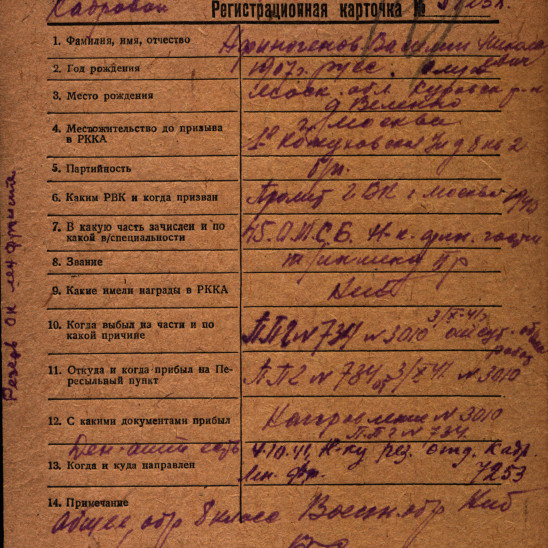 Кадровая Регистрационная карточка №
1. Фамилия, имя, отчество Афиногенов Василий Николаевич
2. Год рождения 1907 г. русс.
3. Место рождения Моск. обл. Куровск. р-н
д.
4. Местожительство до призыва в РККА г. Москва
1я Кожуховская
5. Партийность б/п.
6. Каким РВК и когда призван Пролет. г. Москва
7. В какую часть зачислен и по какой в/специальности 45. О.М.С.Б. Н-к фин. части
8. Звание
9. Какие имели награды в РККА
10. Когда выбыл из части и по какой причине ППГ № 734 № 3010 3/X-41г.
11. Откуда и когда прибыл на Пересыльный пункт ППГ № 734 от 3/X 41 № 3010
12. С какими документами прибыл Направление № 3010
ППГ № 734.
Ден-атт. есть
13. Когда и куда направлен 4.10.41, Н-ку рез. отд. кадр.
Лен. фр. 7253
14. Примечание
Общее обр 8 класс Военн. обр
Резерв ОК лен фронта